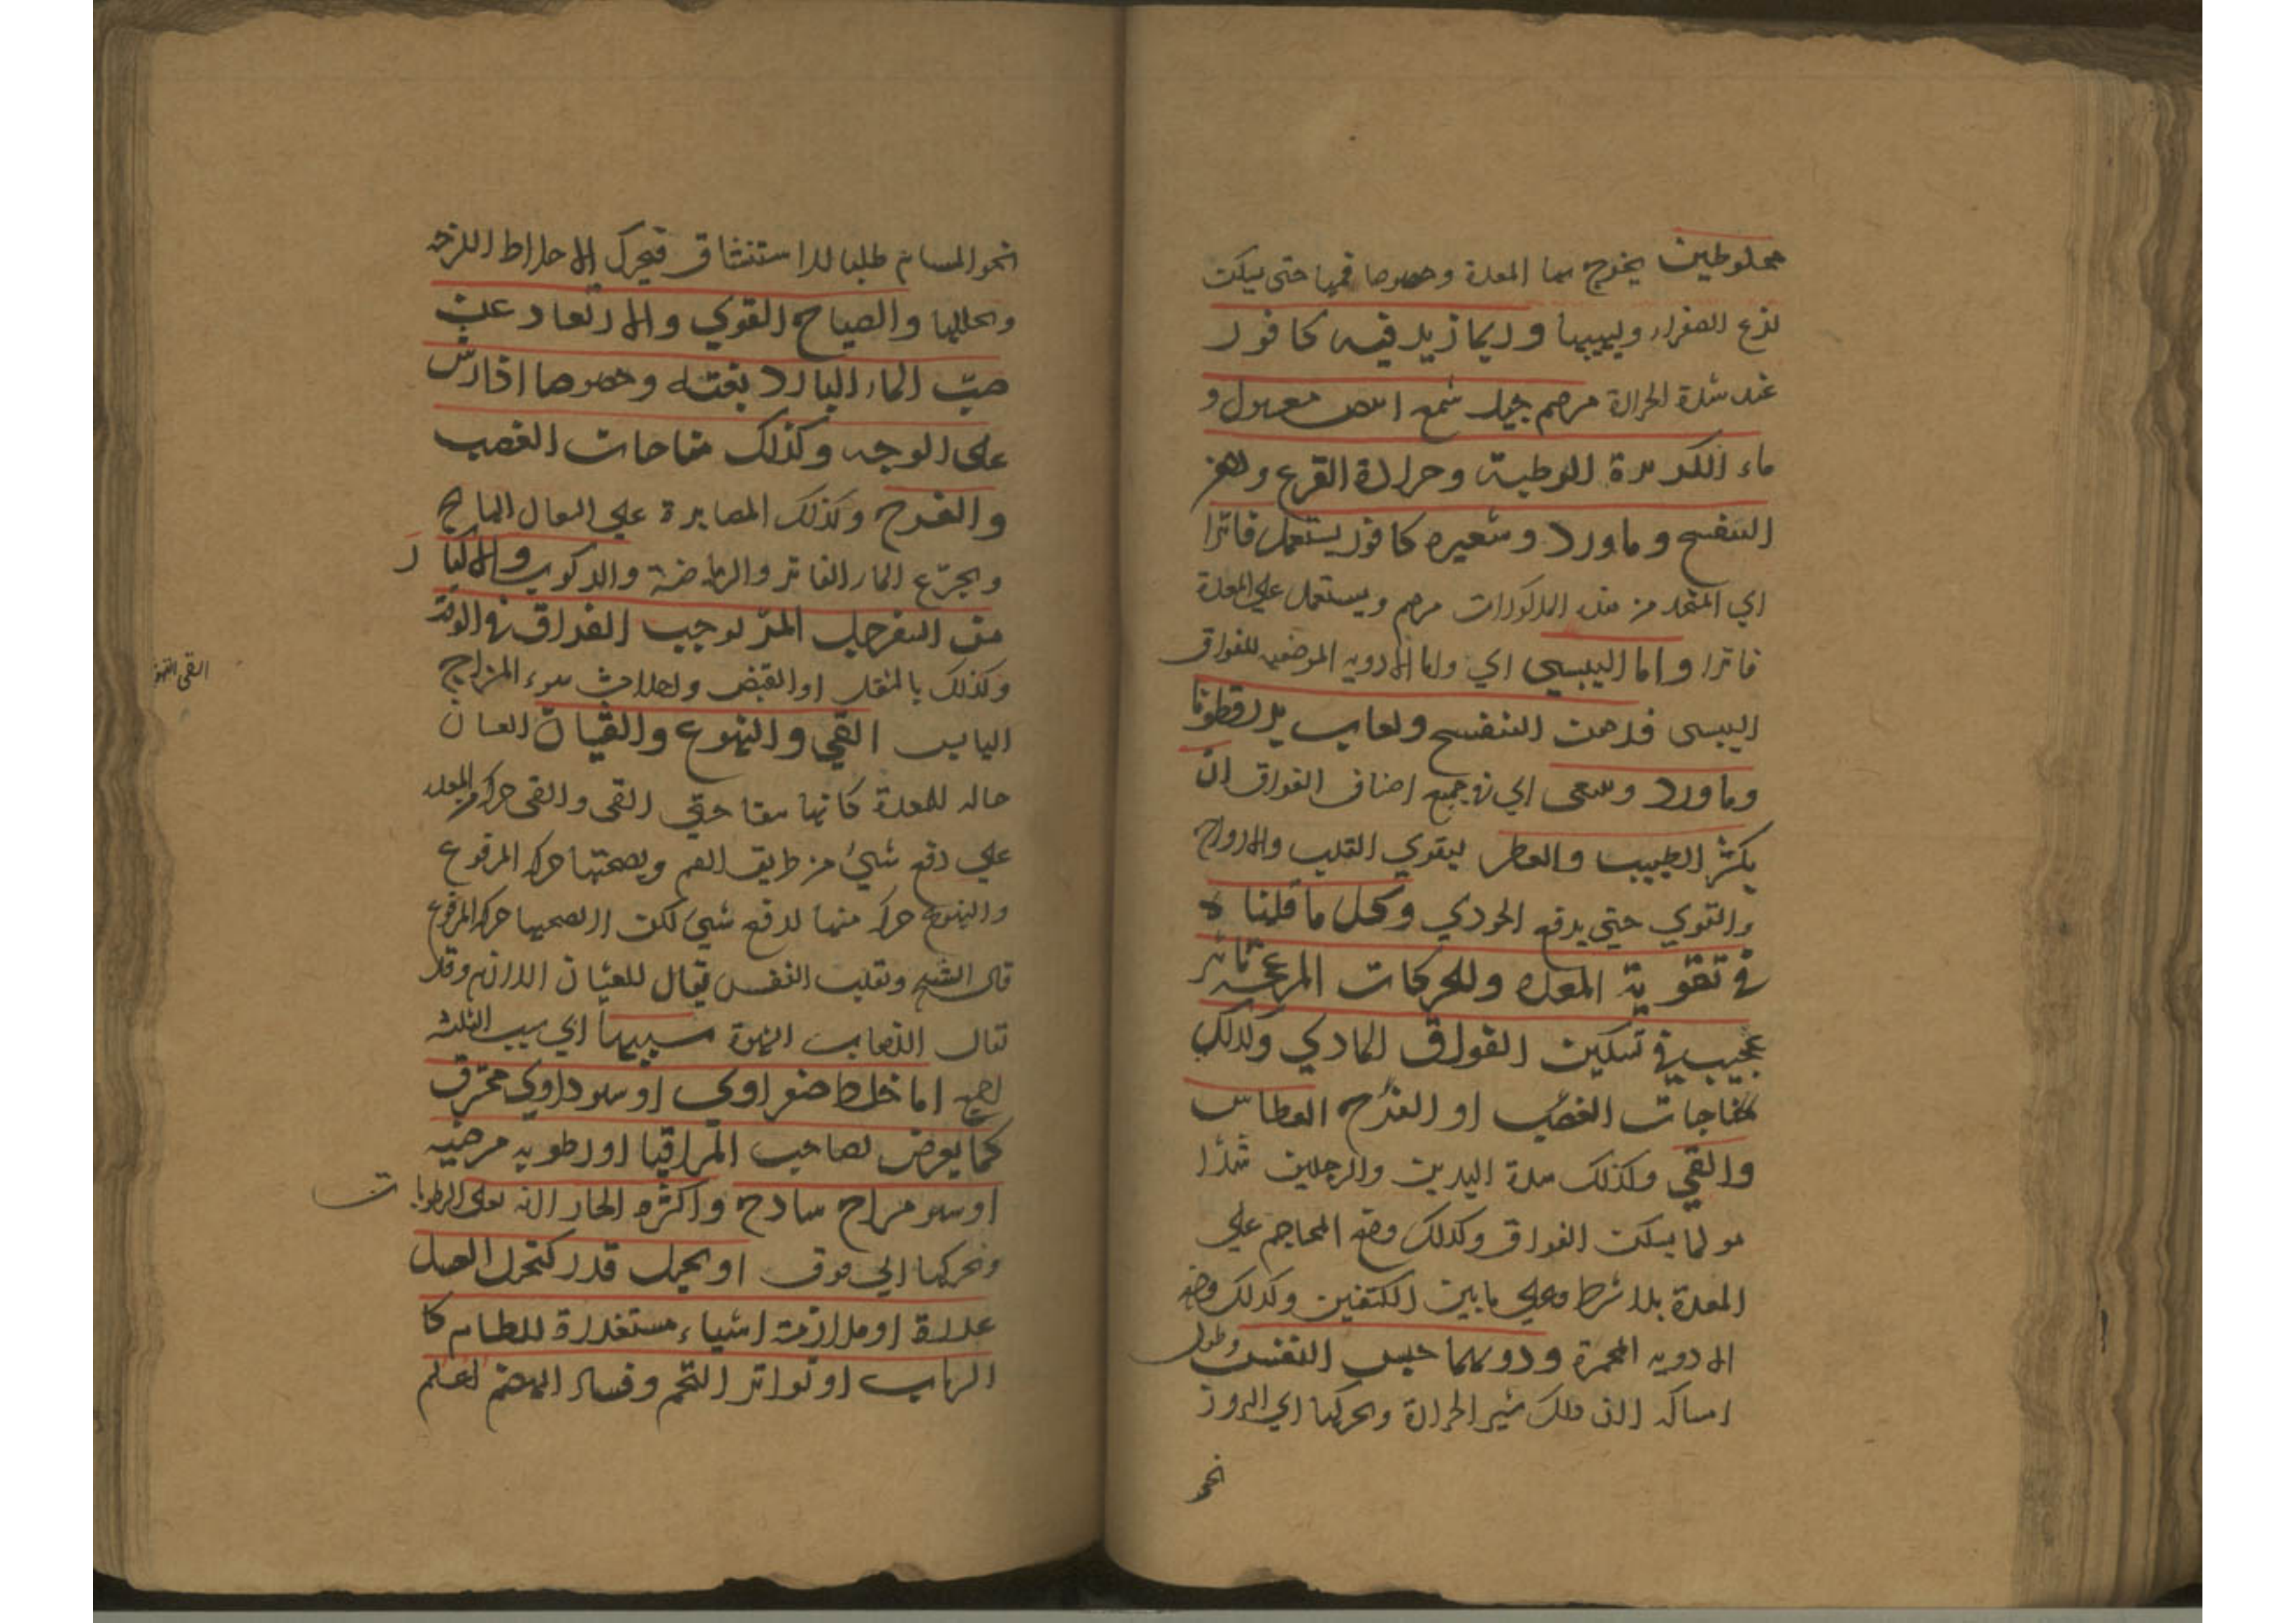 مخلوطين يخرج بها المعدة وخصوصا فمها حتى يسكن
لذع الصفراء ويبسها وربما زيد فيه كافور
عند شدة الحرارة مرهم جيد شمع ابيض مغسول و
ماء الرطبة وحرادة القرع ودهن
البنفسج وماورد وشعيره كافور يستعمل فاترا
اي المتخذ من هذه المذكورات مرهم ويستعمل علي المعدة
فاترا واما اليبسي اي واما الادويه الموضعيه للفواق
اليبسى فدهن البنفسج ولعاب بزرقطونا
وماورد وينبغى اي في جميع اصناف الفواق ان
يكثر الطيب والعطر ليقوي القلب والارواح
والقوي حتى يدفع الموذي وكل ما قلنا ه
في تقوية المعده وللحركات المزعجه تاثير
عجيب في تسكين الفواق المادي وكذلك
مفاجات الغضب او الفرح العطاس
والقي وكذلك شدة اليدين والرجلين شدا
مولما يسكن الفواق وكذلك وضع المحاجم علي
المعدة بلا شرط وعلي ما بين الكتفين وكذلك وضع
الادويه المحمرة ودونهما حبس النفس وطول
امساكه لان ذلك يثير الحرارة ويحركها الي البروز
نحو
نحو المسام طلبا للاستنشاق فيحرك الاخلاط اللزجه
ويحللها والصياح القوي والارتعاد عن
صب الماء البارد بغتة وخصوصا اذا رش
على الوجه وكذلك مفاجات الغضب
والفرح وكذلك المصابرة علي السعال الهايج
وتجرع الماء الفاتر والرياضة والركوب والاكثار
من السفرجل المر يوجب الفواق في الوقت
وكذلك بالثقل او القبض واحداث سوء المزاج
اليابس القي والتهوع والغثيان الغثيان
حاله للمعدة كانها بها تقي القى والقى حركه من المعده
علي دفع شيء من طريق الفم ويصحبها حركه المدفوع
والتهوع حركه منها لدفع شيء لكن لا يصحبها حركه المدفوع
قال الشيخ وتقلب النفس يقال للغثيان اللازم وقد
يقال لذهاب الشهوة سببها اي سبب الثلثه
اما خلط صفراوي او سوداوي محترق
كما يعرض لصاحب المراقيا او رطوبه مرخيه
او سو مزاج سادج واكثره الحار لانه يغلى الرطوبات
ويحركها الي فوق او تخيل قذر كتخيل العسل
عذرة او ملازمة اشياء مستقذرة للطعام كا
الذباب او تواتر التخم وفساد الهضم اعلم
القى التهوع